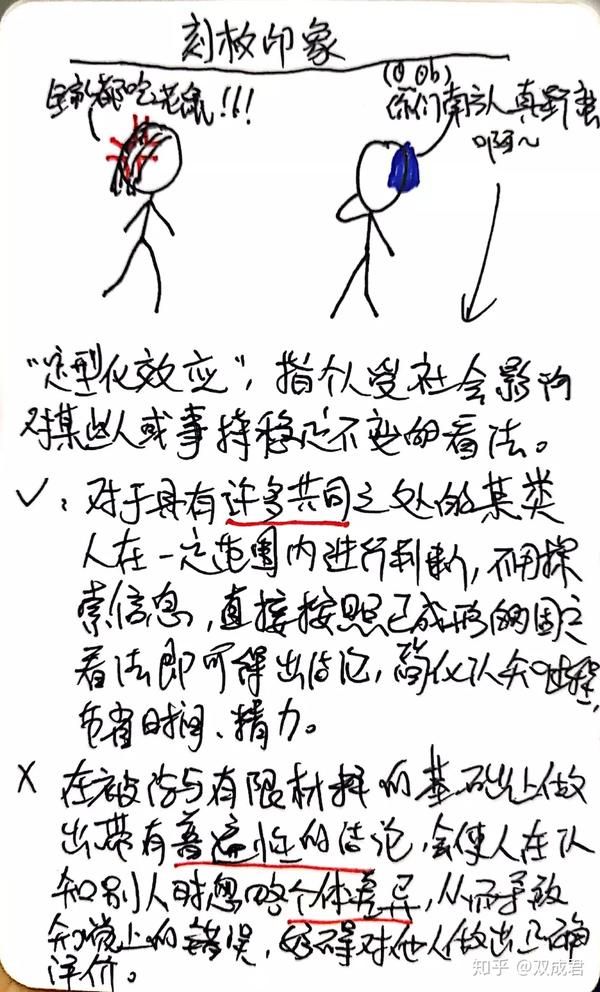 刻板印象
全家都吃老鼠!!!
(⊙_⊙b)
你们南方人真野蛮
啊~
“定型化效应”,指个人受社会影响
对某些人或事持稳定不变的看法。
✓:对于具有许多共同之处的某类
人在一定范围内进行判断,不用探
索信息,直接按照已成形的固定
看法即可得出结论,简化认知过程,
节省时间、精力。
X 在被给与有限材料的基础上做
出带有普遍性的结论,会使人在认
知别人时忽略个体差异,从而导致
知觉上的错误,妨碍对他人做出正确
评价。
知乎 @双成君